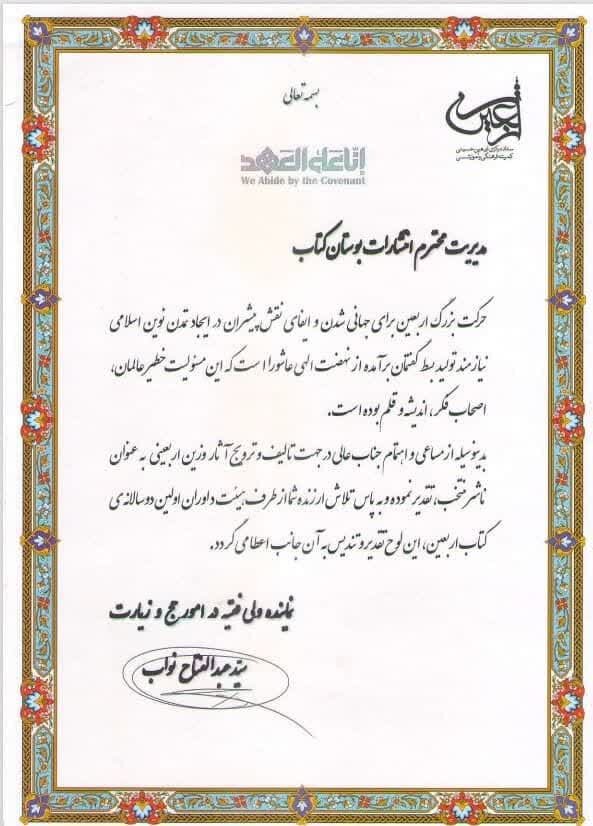 بسمه تعالی
اربعین
ستاد مرکزی اربعین حسینی
کمیته فرهنگی و آموزشی
إنا علی العهد
We Abide by the Covenant
مدیریت محترم انتشارات بوستان کتاب
حرکت بزرگ اربعین برای جهانی شدن و ایفای نقش پیشران در ایجاد تمدن نوین اسلامی
نیازمند تولید بسط گفتمان برآمده از نهضت الهی عاشورا است که این مسئولیت خطیر عالمان،
اصحاب فکر، اندیشه و قلم بوده است.
بدینوسیله از مساعی و اهتمام جناب عالی در جهت تالیف و ترویج آثار وزین اربعینی به عنوان
ناشر منتخب، تقدیر نموده و به پاس تلاش ارزنده شما از طرف هیئت داوران اولین دوسالانه ی
کتاب اربعین، این لوح تقدیر و تندیس به آن جانب اعطا می گردد.
نماینده ولی فقیه در امور حج و زیارت
سید عبدالفتاح نواب